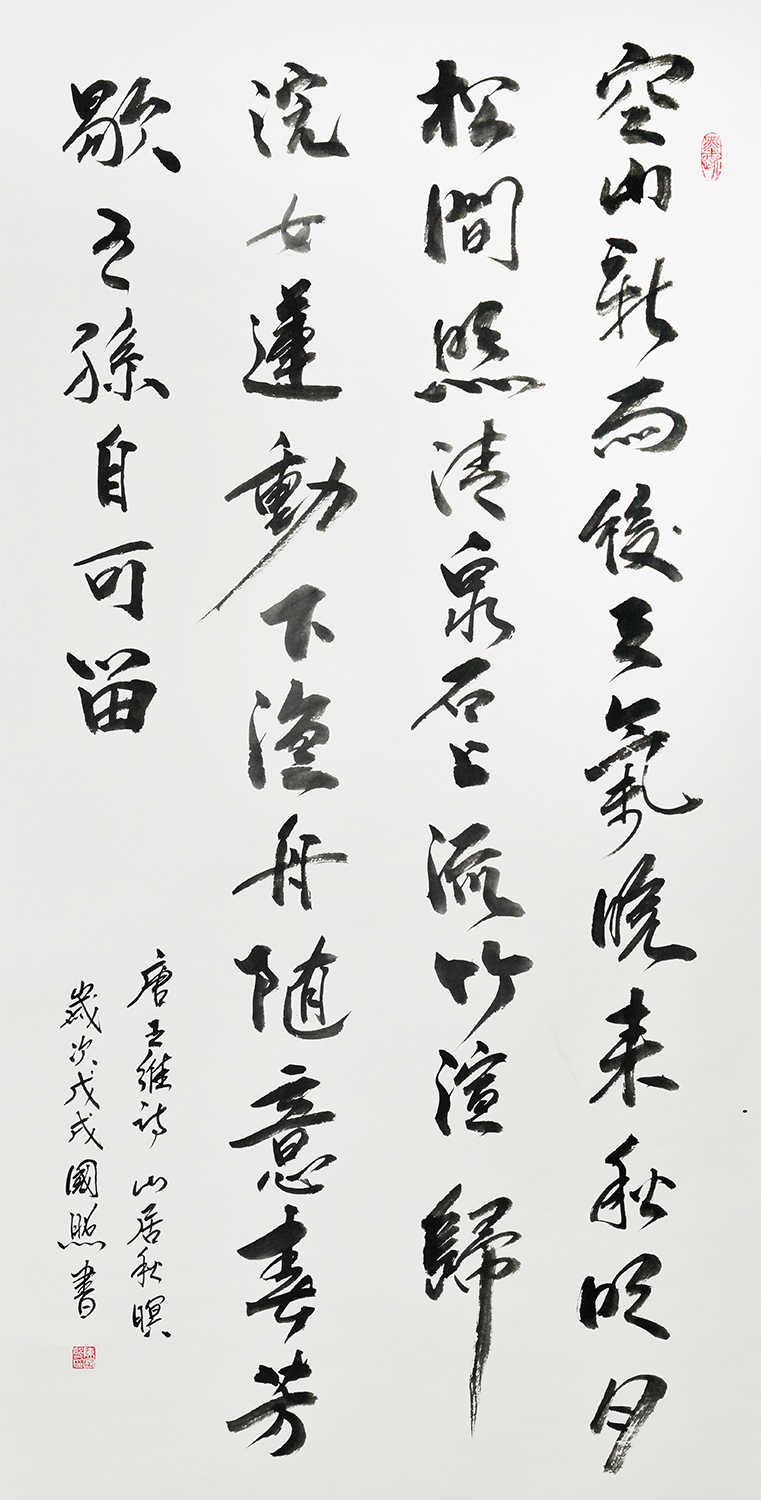 空山新雨後天氣晚来秋明月
松間照清泉石上流竹渲歸
浣女蓮動下漁舟随意春芳
歇王孫自可留
唐王維詩 山居秋暝
歲次戊戌國照書